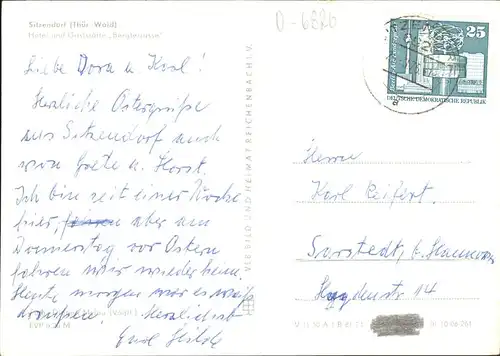 Sitzendorf (Thür. Wald)
Hotel und Gaststätte „Bergterrasse"
D-6826
25
DEUTSCHE DEMOKRATISCHE REPUBLIK
Liebe Dora u. Karl!
Herzliche Ostergrüße
aus Sitzendorf auch
von Grete u. Horst.
Ich bin seit einer Woche
hier, aber am
Donnerstag vor Ostern
fahren wir wieder heim.
Heute morgen war es weiß
draußen. Herzlichst
Eure Hilde
VEB BILD UND HEIMAT REICHENBACH I. V.
Herrn
Karl Seifert.
Sarstedt, b. Hannover
14